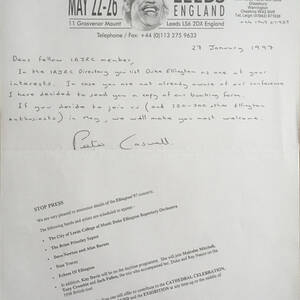 MAY 22-26
LEEDS
ENGLAND
11 Grosvenor Mount
Leeds LS6 2DX England
Telephone / Fax: +44 (0)113 275 9633
Warrington
27 January 1997
Dear fellow IAJRC member,
In the IAJRC Directory you list Duke Ellington as one of your
interests. In case you are not already aware of our conference
I have decided to send you a copy of our booking form.
If you decide to join us (and 150-200 other Ellington
enthusiasts) in May, we will make you most welcome.
Peter Caswell
STOP PRESS
We are very pleased to announce details of the Ellington '97 concerts.
The following bands and artists are scheduled to appear:
The City of Leeds College of Music Duke Ellington Repertory Orchestra
The Brian Priestley Septet
Dave Newton and Alan Barnes
Stan Tracey
Echoes Of Ellington
In addition, Kay Davis will be on the daytime programme. She will join Malcolm Mitchell,
Tony Crombie and Jack Fallon, the trio who accompanied her, Duke and Ray Nance on the
1948 British tour.
CATHEDRAL CELEBRATION,